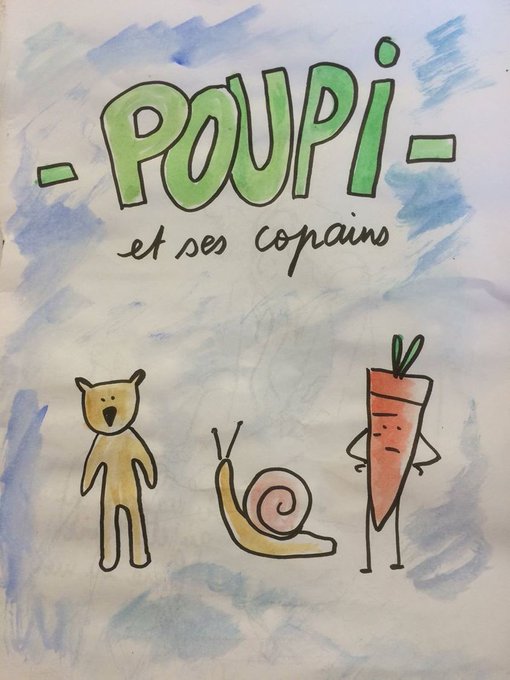 - POUPi -
et ses copains